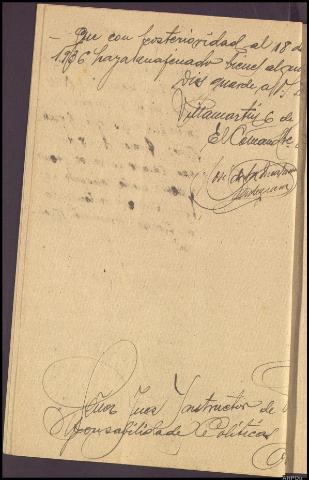 - Que con posterioridad al 18 de
1936 haya enajenado bienes algun
Dios guarde a V. S.
Villamartin 6 de
El Comandte
Señor Juez Instructor de
sponsabilidades Politicas